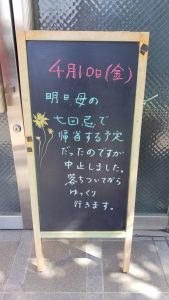 4月10日(金)
明日母の
七回忌で
帰省する予定
だったのですが
中止しました。
落ちついてから
ゆっくり
行きます。